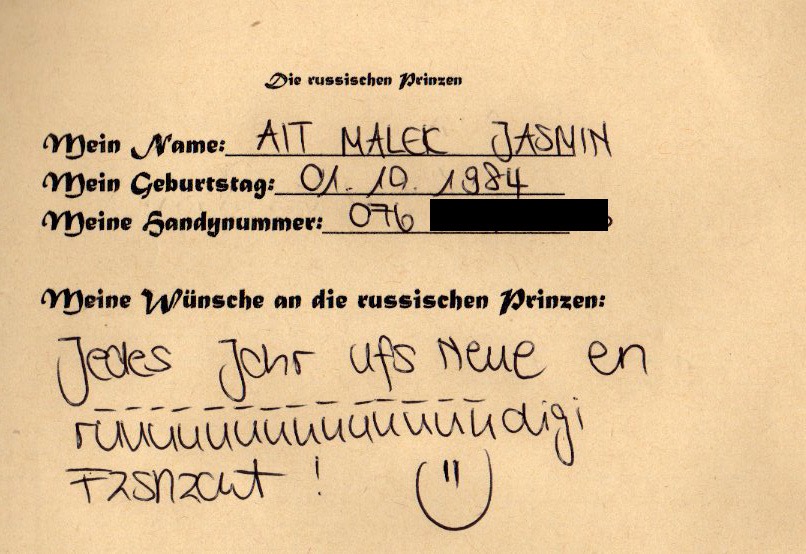 Die russischen Prinzen
Mein Name: AIT MALEK JASMIN
Mein Geburtstag: 01. 10. 1984
Meine Handynummer: 076
Meine Wünsche an die russischen Prinzen:
Jedes Johr ufs Neue en
rüüüüüüüüüüüüüdigi
Fasnacht!